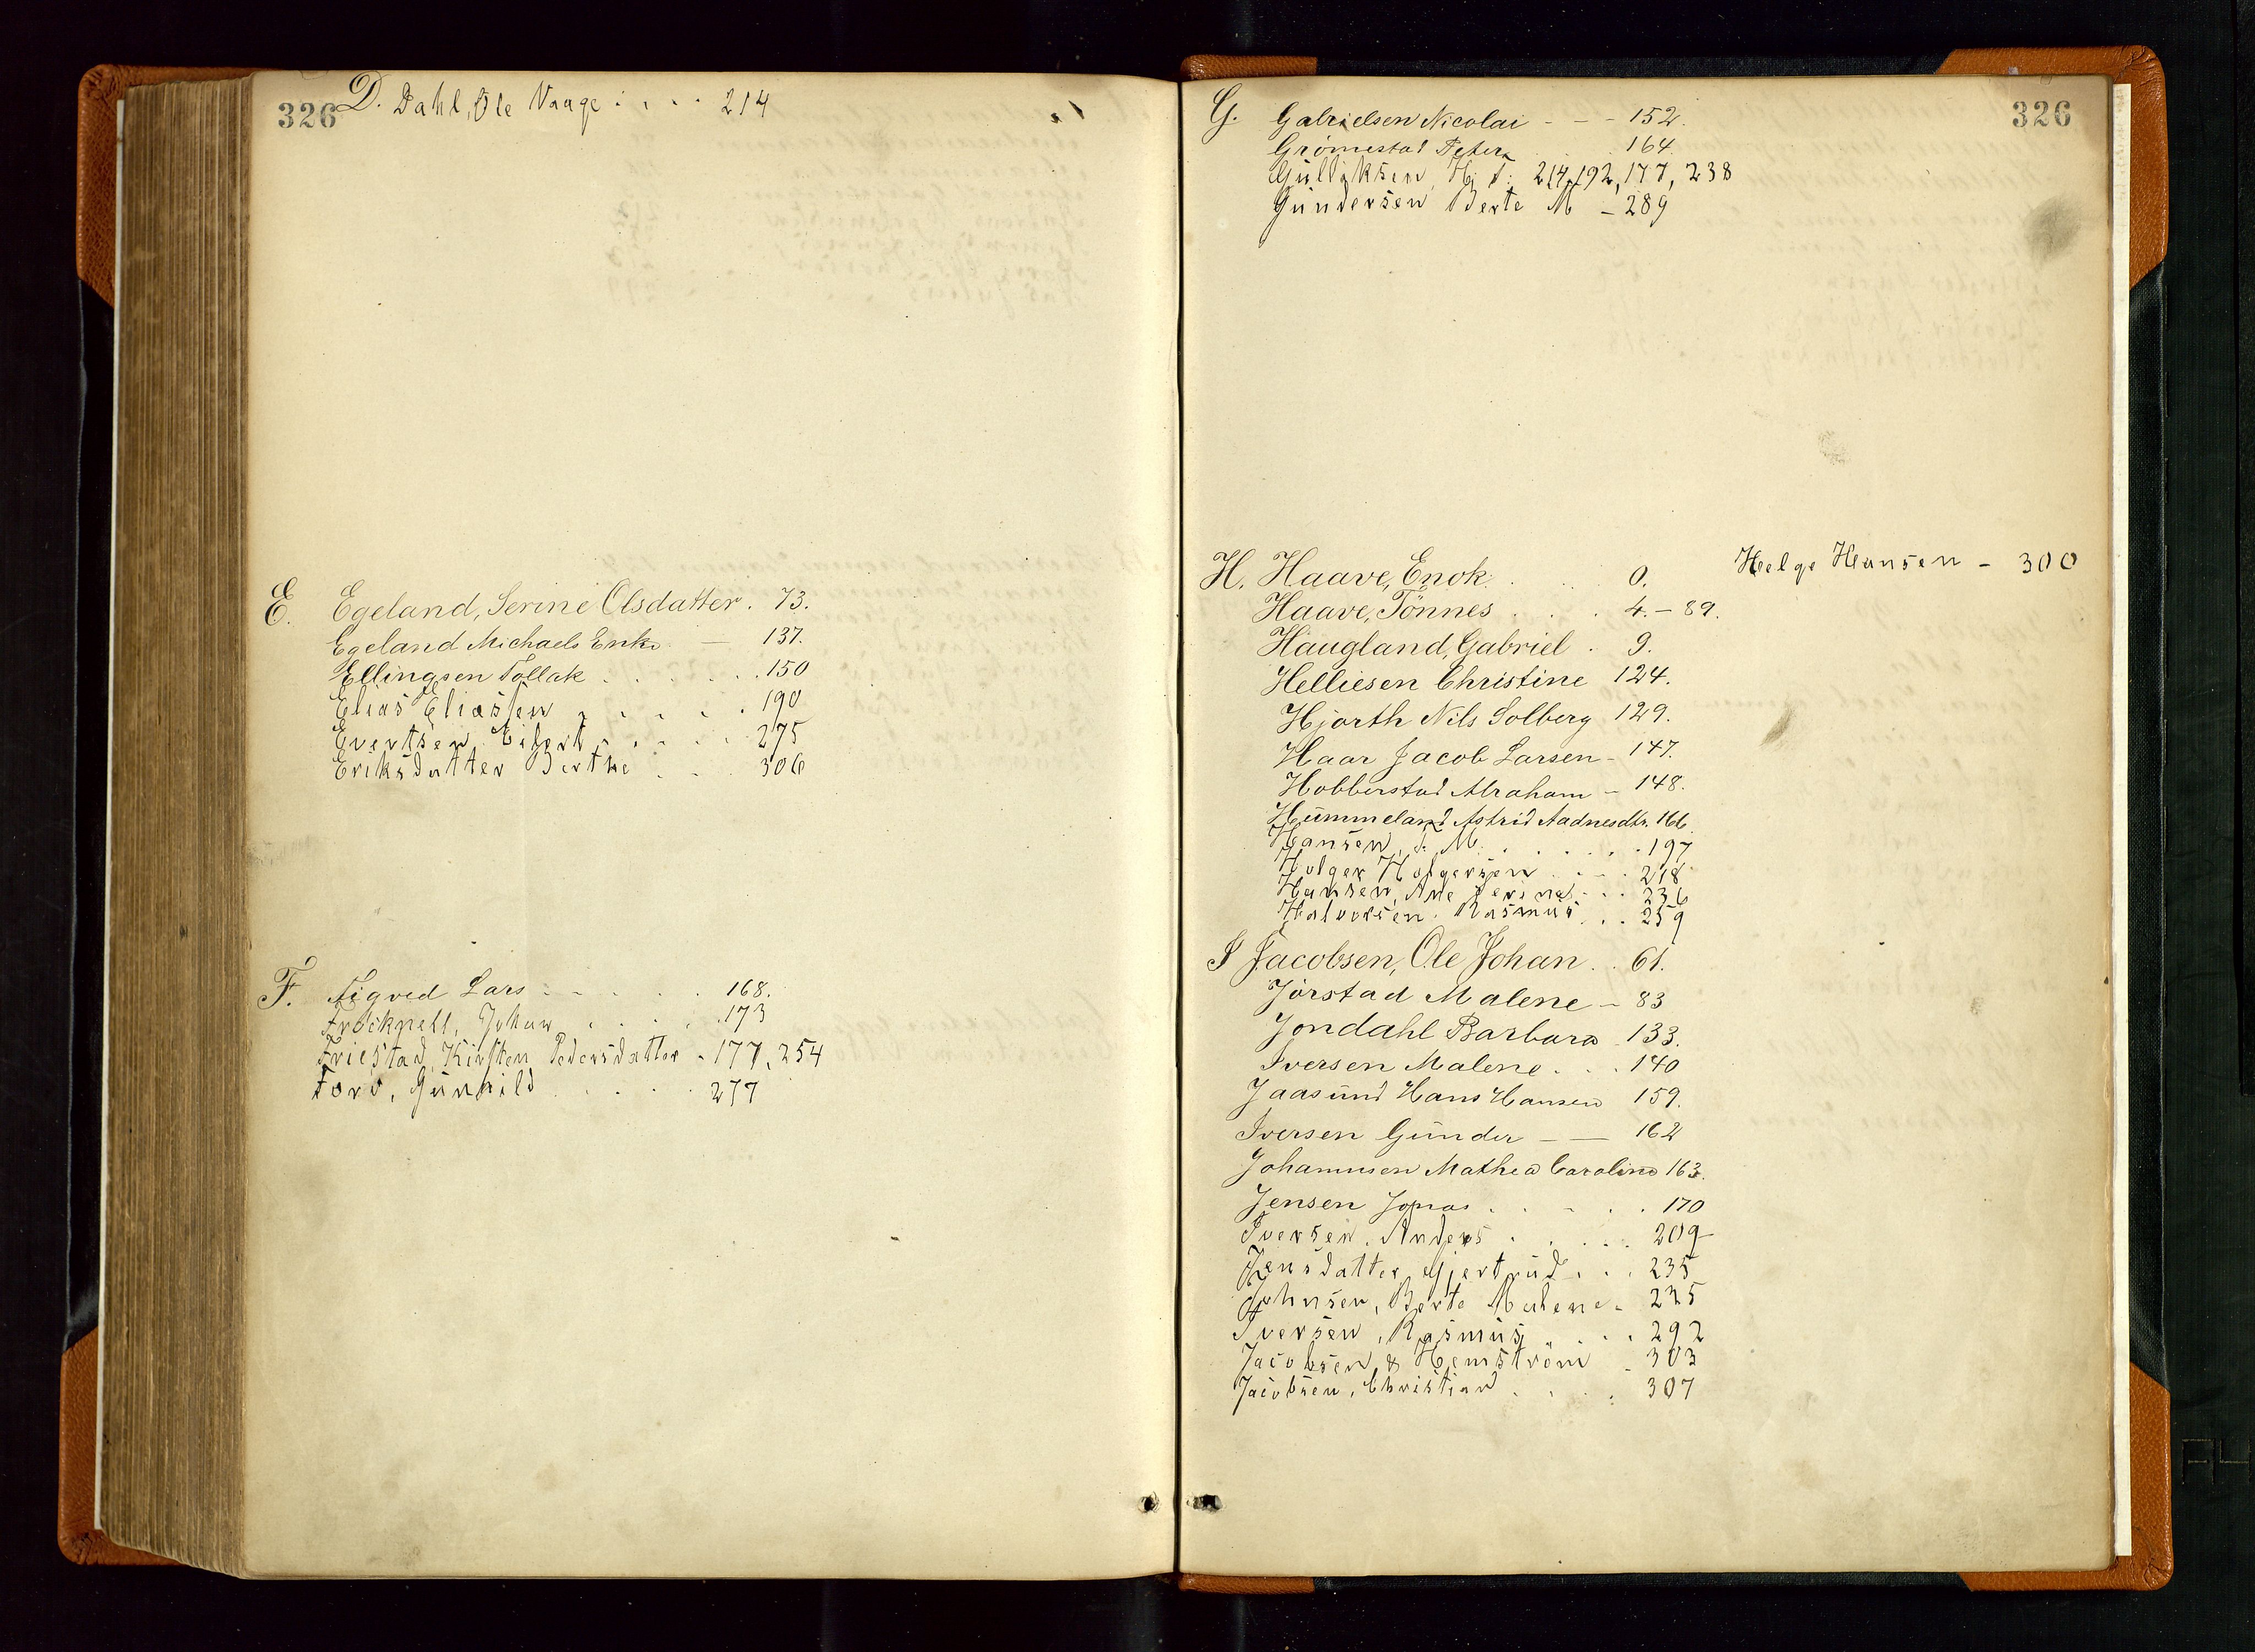 326
D. Dahl, Ole Vaage . . . . 214
E. Egeland, Serine Olsdatter. 73.
Egeland Michaels Enke — 137.
Ellingsen Tollak . . . . . . 150
Elias Eliassen . . . . . 190
Evertsen Eilert . . . . . 275
Eriksdatter Berthe . . . 306
F. Figved Lars . . . . . 168.
Frøcknell, Johan . . . . . 173
Friestad, Kirsten Pedersdatter - 177, 254
Ford, Gunhild . . . . . 277
326
G. Gabrielsen Nicolai - - - 152.
Grömestad Peter 164.
Gulliksen, H. 214, 192, 177, 238
Gundersen Berte M - 289
H. Haave, Enok . . . 0.
Helge Hansen - 300
Haave, Tönnes . . . . 4. - 89.
Haugland, Gabriel . 9.
Helliesen Christine 124.
Hjorth Nils Solberg 129.
Haar Jacob Larsen - 147.
Hobberstad Abraham - 148.
Hummeland Astrid Aadnesdtr. 166.
Hansen, M. . . . . . . 197
Holger Holgersen . . . . 218
Hansen, Ane Serine . . . 236
Halvorsen, Rasmus . . . 259
I Jacobsen, Ole Johan . . 61.
Jörstad Malene - 83
Jondahl Barbara 133.
Iversen Malene . . . 140
Jaasund Hans Hansen 159.
Iversen Gunder — — 162
Johannesen Mathea Caroline 163.
Jensen Jonas . . . . . 170
Iversen, Anders . . . . . 209
Jensdatter, Gjertrud . . . 235
Johnsen, Berte Malene - 275
Iversen, Rasmus . . . . 292
Jacobsen & Hemström - 303
Jacobsen, Christian . . . . 307